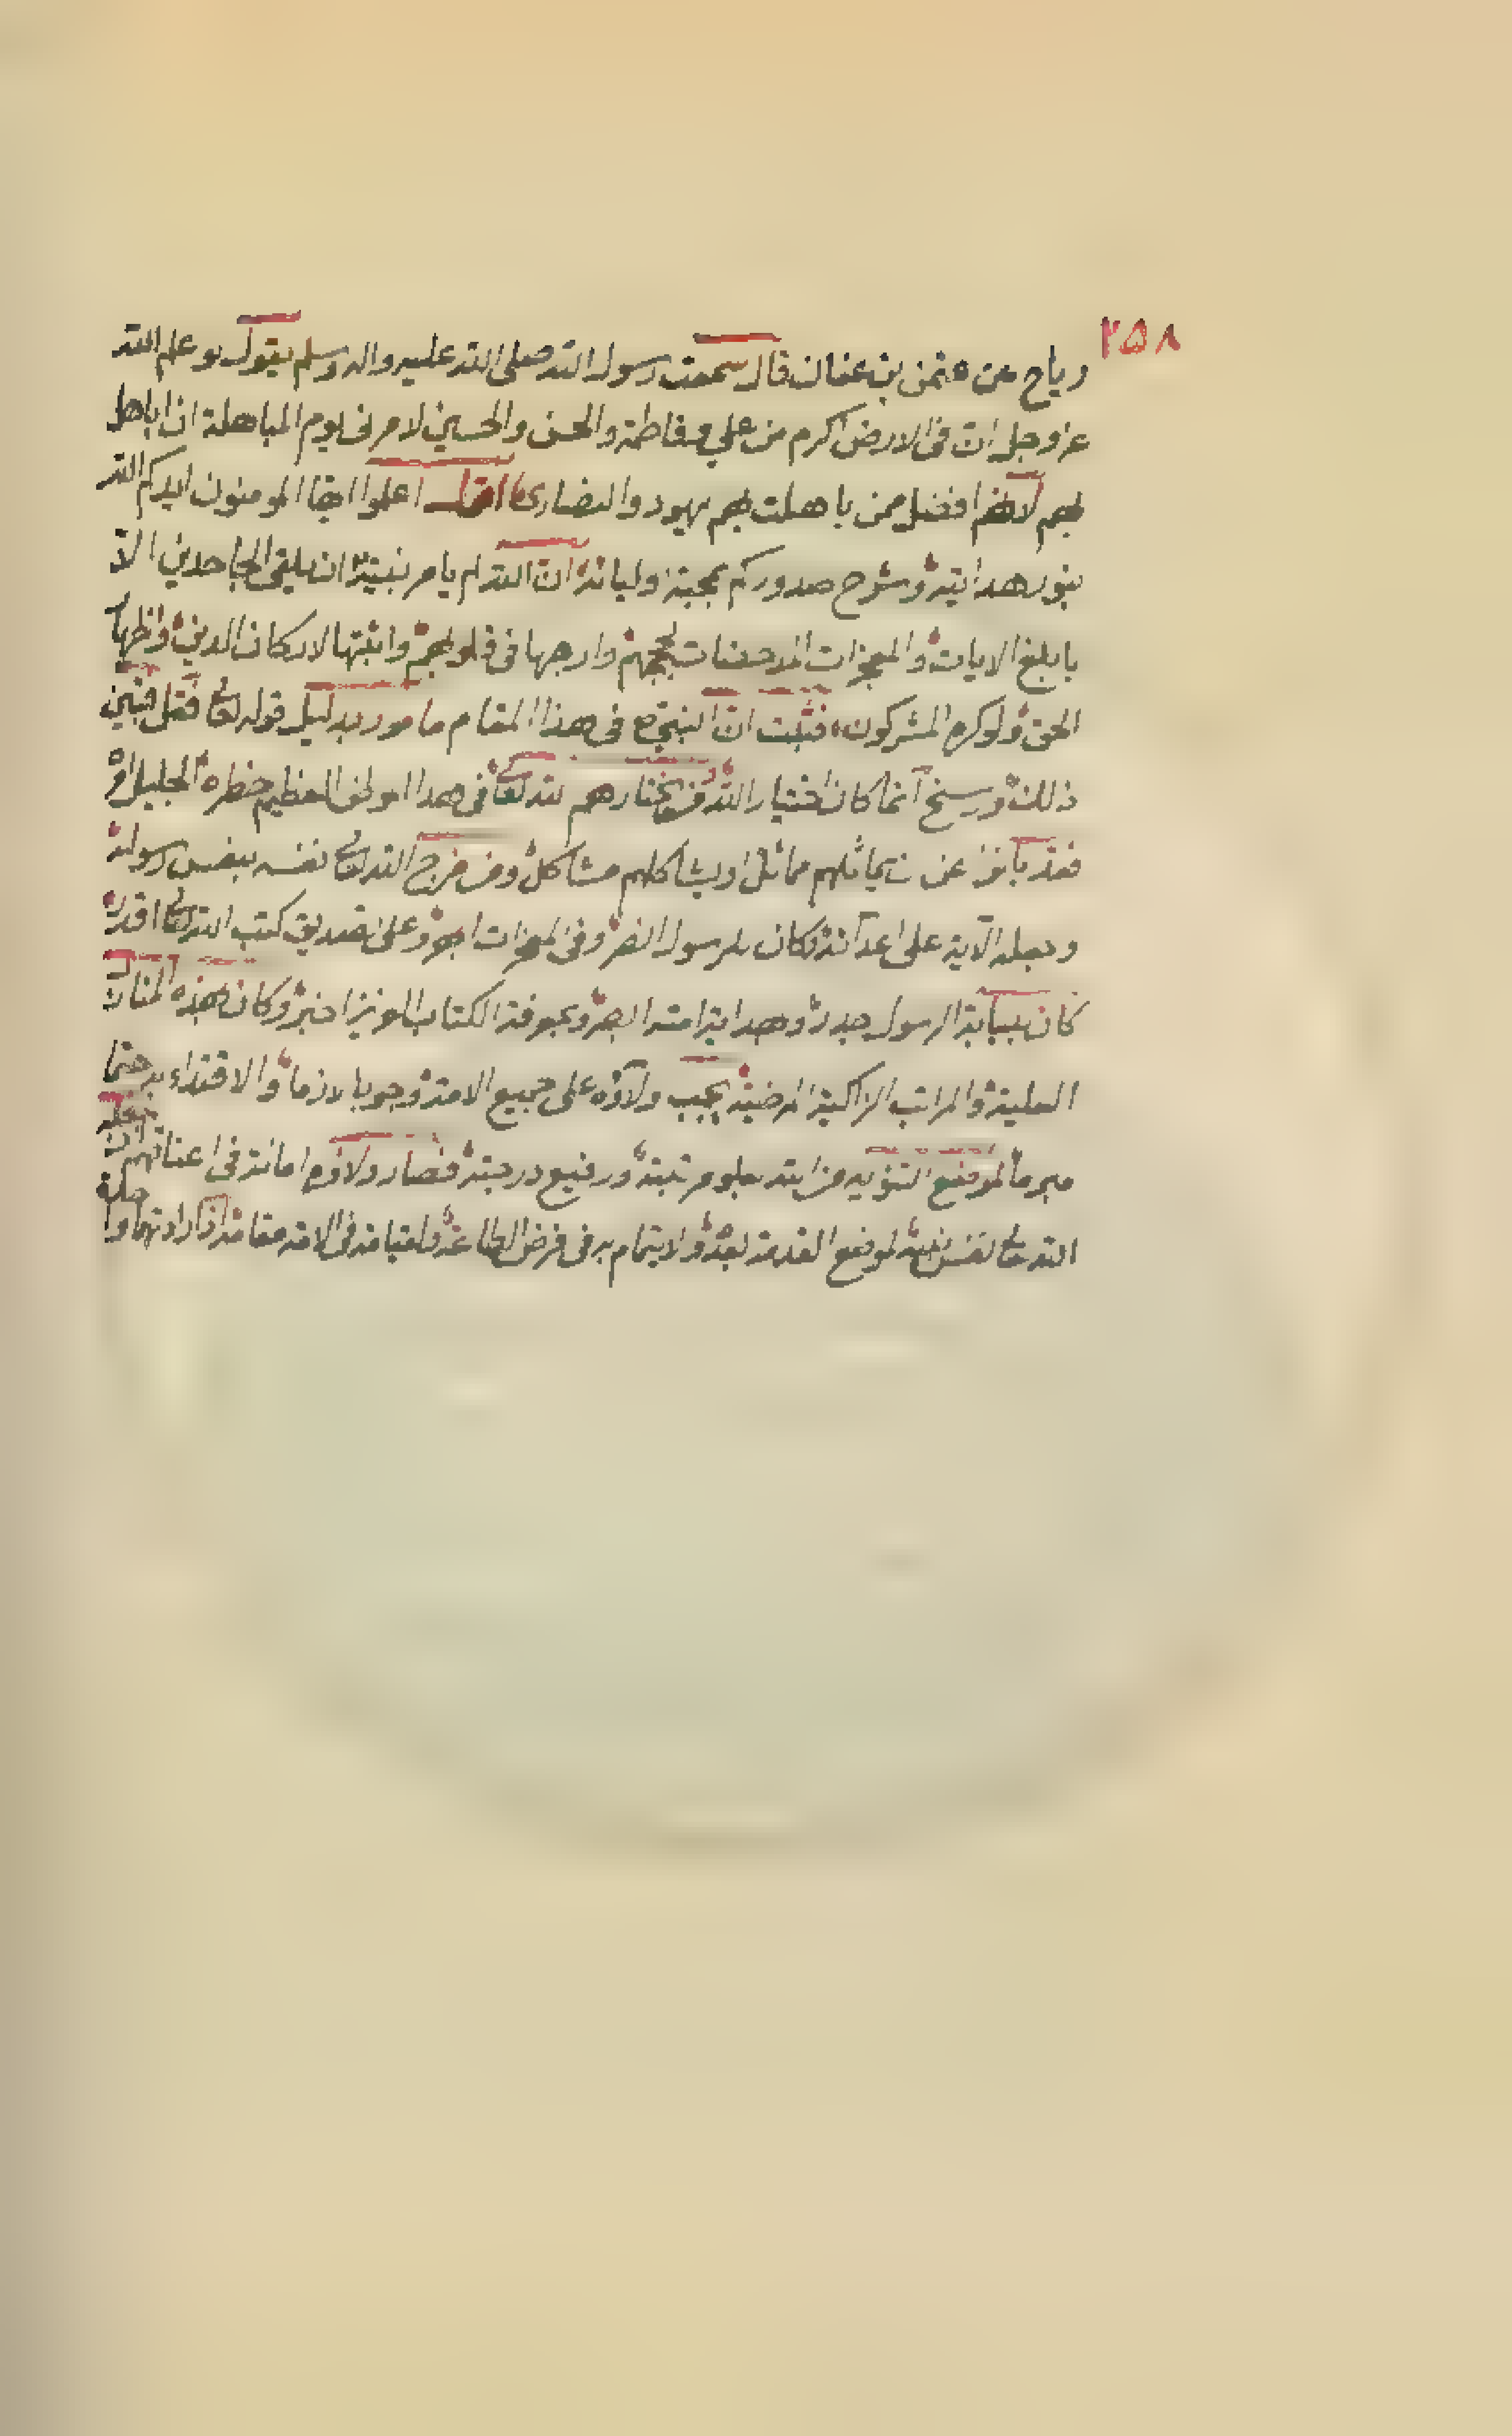 ۲۵۸
رياح عن عثمن بن عفان قال سمعت رسول الله صلى الله عليه واله وسلم يقول لو علم الله
عز وجل ان فى الارض اكرم من علي وفاطمة والحسن والحسين لامرنى يوم المباهلة ان اباهل
بهم لانهم افضل ممن باهلت بهم يهود والنصارى اقول اعلموا ايها المومنون ايدكم الله
بنور هدايته وشرح صدوركم بمحبة اوليائه ان الله لم يامر نبيه ان يلقى الجاحدين الا
بابلغ الايات والمعجزات المدحضات لحججهم وارجها فى قلوبهم واثبتها لاركان الدين واظهار
الحق ولو كره المشركون فثبت ان النبى فى هذا المقام مامور بدليل قوله تعالى فقل فتبين
ذلك ورسخ انما كان اختيار الله فمن يختارهم لله تعالى فى هذا الموطن العظيم خطره الجليل امره
فقد بانوا عن يماثلهم مماثل او يشاكلهم مشاكل ومن مزج الله تعالى نفسه بنفس رسوله
وجعله الآية على اعدائه لكان للرسول انصر وفى المعجزات ابهر وعلى تصديق كتب الله تعالى اقدر
كان بنيابة الرسول جدر وهداية امته ابصر وبمعرفة الكتاب العزيز اخبر وكان بهذه المنازل
العلية والمراتب الزاكية المرضية يجب ولاؤه على جميع الامة وجوبا لازما والاقتداء به حتما
مبرما لموضع التنويه من الله بعلو مرتبته ورفيع درجته فصار ولاؤه امانة فى اعناقهم لان
الله تعالى نفس نبيه لموضع القدمة بعده والايتمام به فى فرض الطاعة ولقيامه فى الامة مقامه اذ اراد تهما وا